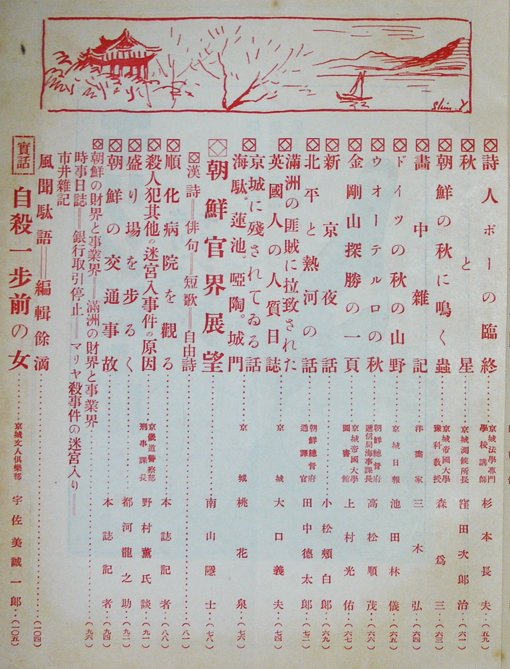 Shin. Y.
詩人ポーの臨終 京城法學專門學校講師 杉本長夫(五九)
秋と星 京城測候所長 窪田次郎治(六一)
朝鮮の秋に鳴く蟲 京城帝國大學豫科敎授 森爲三(六三)
畵中雜記 洋畵家 三木弘(六四)
ドイツの秋の山野 京城日報 池田林儀(六五)
ウオーテルロの秋 朝鮮總督府遞信局海事課長 高松順茂(六六)
金剛山探勝の一頁 京城帝國大學圖書館 上村光佑(六七)
新京夜話 小松頰白郎(六九)
北平と熱河の話 朝鮮總督府通譯官 田中德太郎(七二)
滿洲の匪賊に拉致された
英國人の人質日誌 京城 大口義夫(七四)
京城に殘されてゐる話
海駄。蓮池。啞陶。城門 京城 桃花泉(七六)
朝鮮官界展望 南山隱士(七八)
漢詩=俳句=短歌=自由詩(八一)
順化病院を觀る 本誌記者(八八)
殺人犯其他の迷宮入事件の原因 京畿道警察部刑事課長 野村薰氏談(九一)
盛り場を步るく 都河龍之助(九二)
朝鮮の交通事故 本誌記者(九四)
朝鮮の財界と事業界=滿洲の財界と事業界(九六)
時事日誌=銀行取引停止=マリヤ殺事件の迷宮入り=
市井雜記
風聞駄語=編輯餘滴(一〇四)
實話 自殺一步前の女 京城文人俱樂部 宇佐美誠一郎(一〇五)